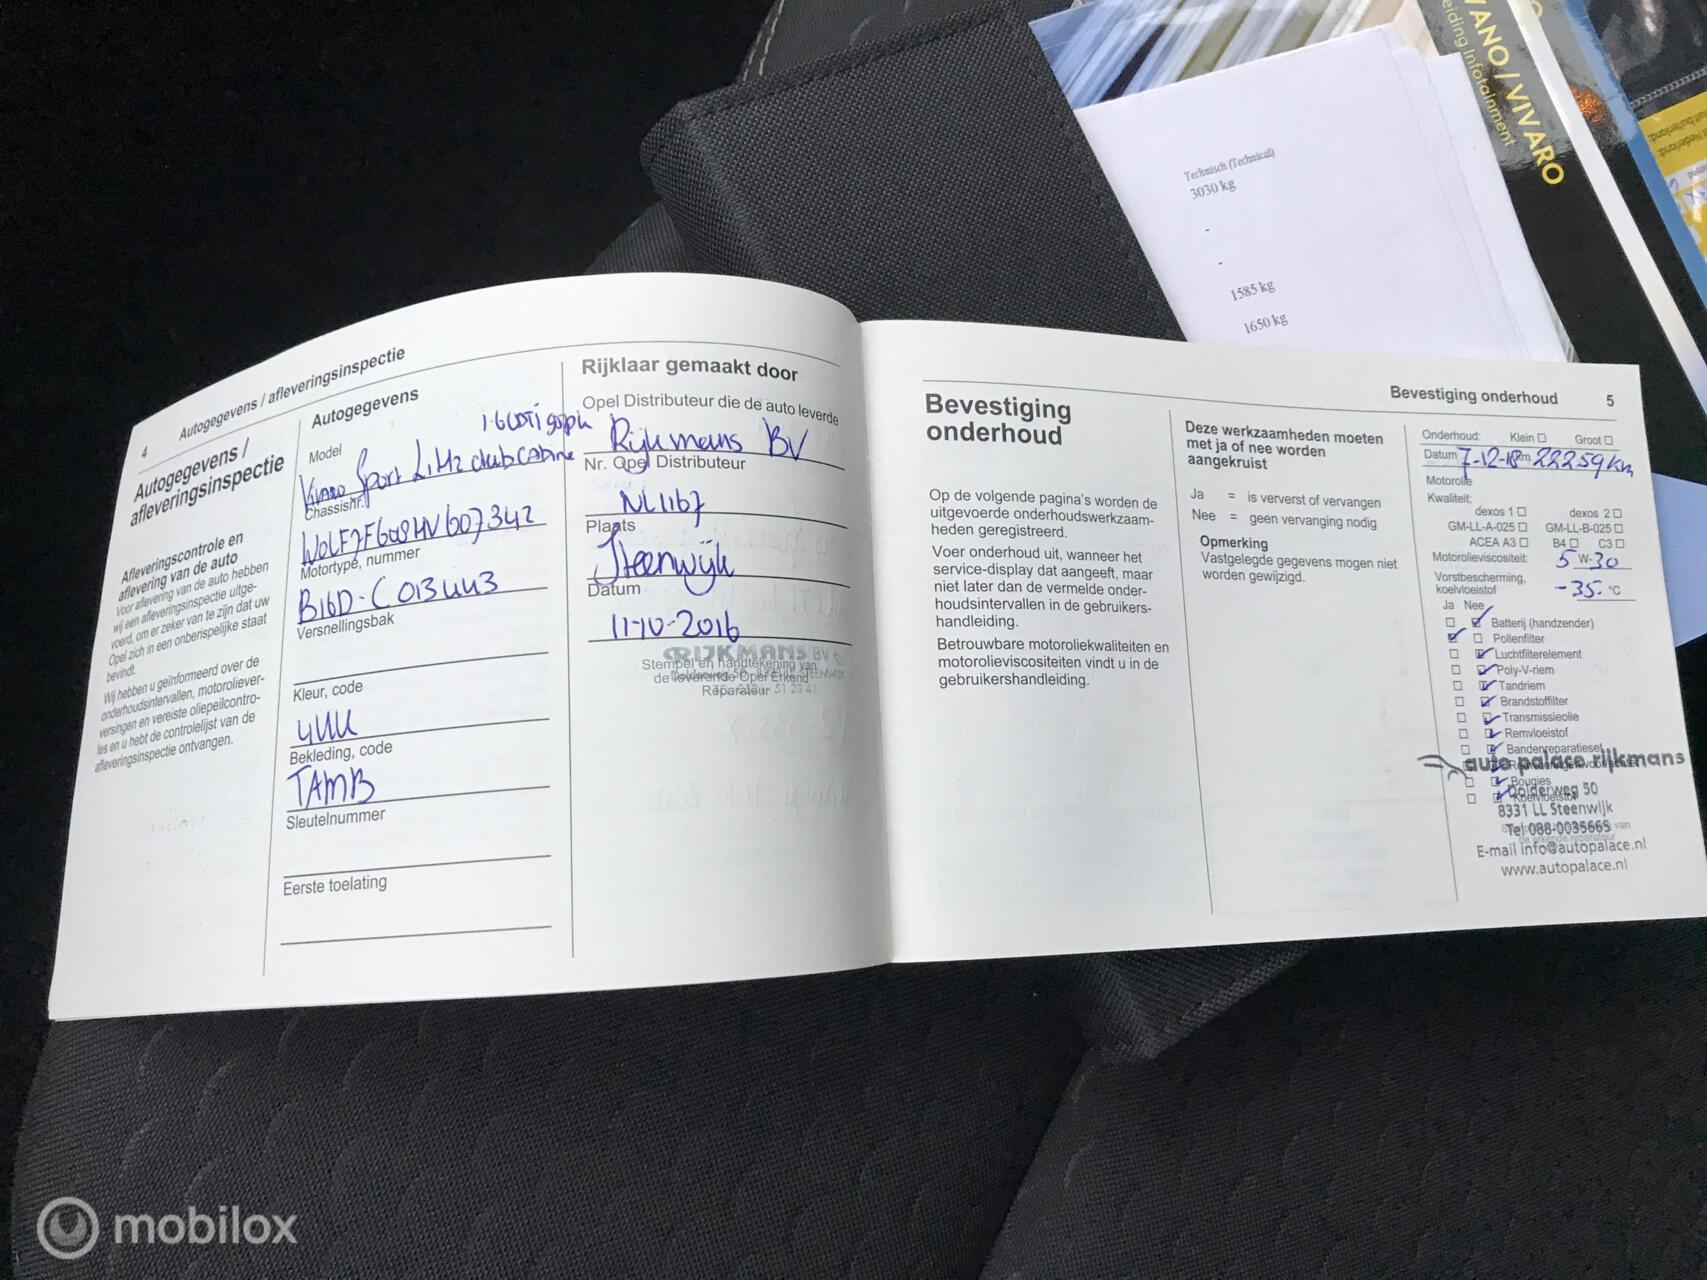 VANO / VIVARO
eiding Infotainment
Technisch (Technical)
3030 kg
-
-
1585 kg
1650 kg
4
Autogegevens / afleveringsinspectie
Autogegevens /
afleveringsinspectie
Afleveringscontrole en
aflevering van de auto
Voor aflevering van de auto hebben
wij een afleveringsinspectie uitge-
voerd, om er zeker van te zijn dat uw
Opel zich in een onberispelijke staat
bevindt.
Wij hebben u geïnformeerd over de
onderhoudsintervallen, motoroliever-
versingen en vereiste oliepeilcontro-
les en u hebt de controlelijst van de
afleveringsinspectie ontvangen.
Autogegevens
1.6CDTi 95pk
Model
Vivaro Sport L1H2 clubCabine
Chassisnr.
Motortype, nummer
B16D-C013443
Versnellingsbak
Kleur, code
4UU
Bekleding, code
TAMB
Sleutelnummer
Eerste toelating
Rijklaar gemaakt door
Opel Distributeur die de auto leverde
Rijkmans BV
Nr. Opel Distributeur
NL1167
Plaats
Steenwijk
Datum
11-10-2016
RIJKMANS BV
Stempel en handtekening van
de leverende Opel Erkend
Reparateur
Bevestiging onderhoud 5
Bevestiging
onderhoud
Op de volgende pagina's worden de
uitgevoerde onderhoudswerkzaam-
heden geregistreerd.
Voer onderhoud uit, wanneer het
service-display dat aangeeft, maar
niet later dan de vermelde onder-
houdsintervallen in de gebruikers-
handleiding.
Betrouwbare motoroliekwaliteiten en
motorolieviscositeiten vindt u in de
gebruikershandleiding.
Deze werkzaamheden moeten
met ja of nee worden
aangekruist
Ja = is ververst of vervangen
Nee = geen vervanging nodig
Opmerking
Vastgelegde gegevens mogen niet
worden gewijzigd.
Onderhoud: Klein Groot
Datum 7-12-18 km 22259 km
Motorolie
Kwaliteit:
dexos 1 dexos 2
GM-LL-A-025 GM-LL-B-025
ACEA A3 B4 C3
Motorolieviscositeit: 5 W-30
Vorstbescherming,
koelvloeistof -35 °C
Ja Nee
Batterij (handzender)
Pollenfilter
Luchtfilterelement
Poly-V-riem
Tandriem
Brandstoffilter
Transmissieolie
Remvloeistof
Bandenreparatieset
auto palace rijkmans
Bougies
Dolderweg 50
Koelvloeistof
8331 LL Steenwijk
Tel 088-0035665
E-mail info@autopalace.nl
www.autopalace.nl
mobilox